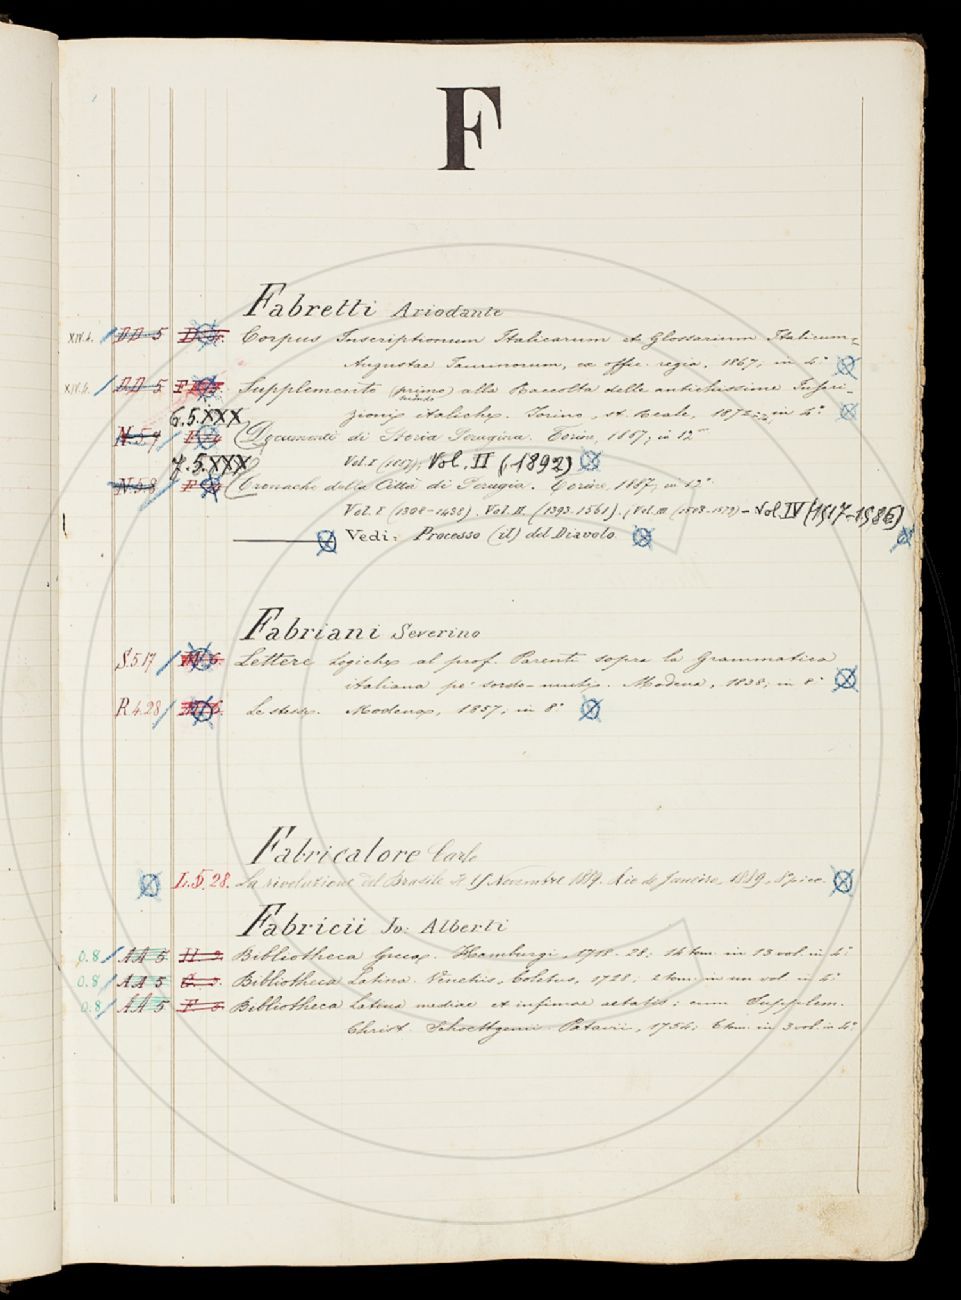 F
Fabretti Ariodante
XIV.4. DD 5 Corpus Inscriptionum Italicarum et Glossarium Italicum=
Augustae Taurinorum, ex offic. regia, 1867, in 4.°
XIV.4. DD 5 Supplemento (primo) alla Raccolta delle antichissime Inscri-
zioni italiche. Torino, st. Reale, 1872; in 4.°
6.5.XXX
Documenti di Storia Perugina. Torino, 1887; in 12°
7.5.XXX Vol. I (1887), Vol. II (1892)
N.5.8 Cronache della Città di Perugia. Torino, 1887, in 12°
Vol. I (1308-1438). Vol. II. (1393-1561). (Vol. III - Vol. IV (1517-1586)
Vedi: Processo (il) del Diavolo
Fabriani Severino
S.5.17 Lettere logiche al prof. Parenti sopra la Grammatica
italiana pe' sordo-muti. Modena, 1838, in 8°
R.4.28 Le stesse. Modena, 1857, in 8°
Fabricalore Carlo
L.5.28. La rivoluzione del Brasile 15 Novembre 1889. Rio de Janeiro, 1889, 8° picc.
Fabricii Jo: Alberti
0.8 AA 5 Bibliotheca Graeca. Hamburgi, 1718-28; 14 tom. in 13 vol. in 4°
0.8 AA 5 Bibliotheca Latina. Venetiis, Coletus, 1728; 2 tom. in un vol. in 4°
0.8 AA 5 Bibliotheca Latina mediae et infimae aetatis; cum Supplem.
Christ. Schoettgenii. Patavii, 1754; 6 tom. in 3 vol. in 4°